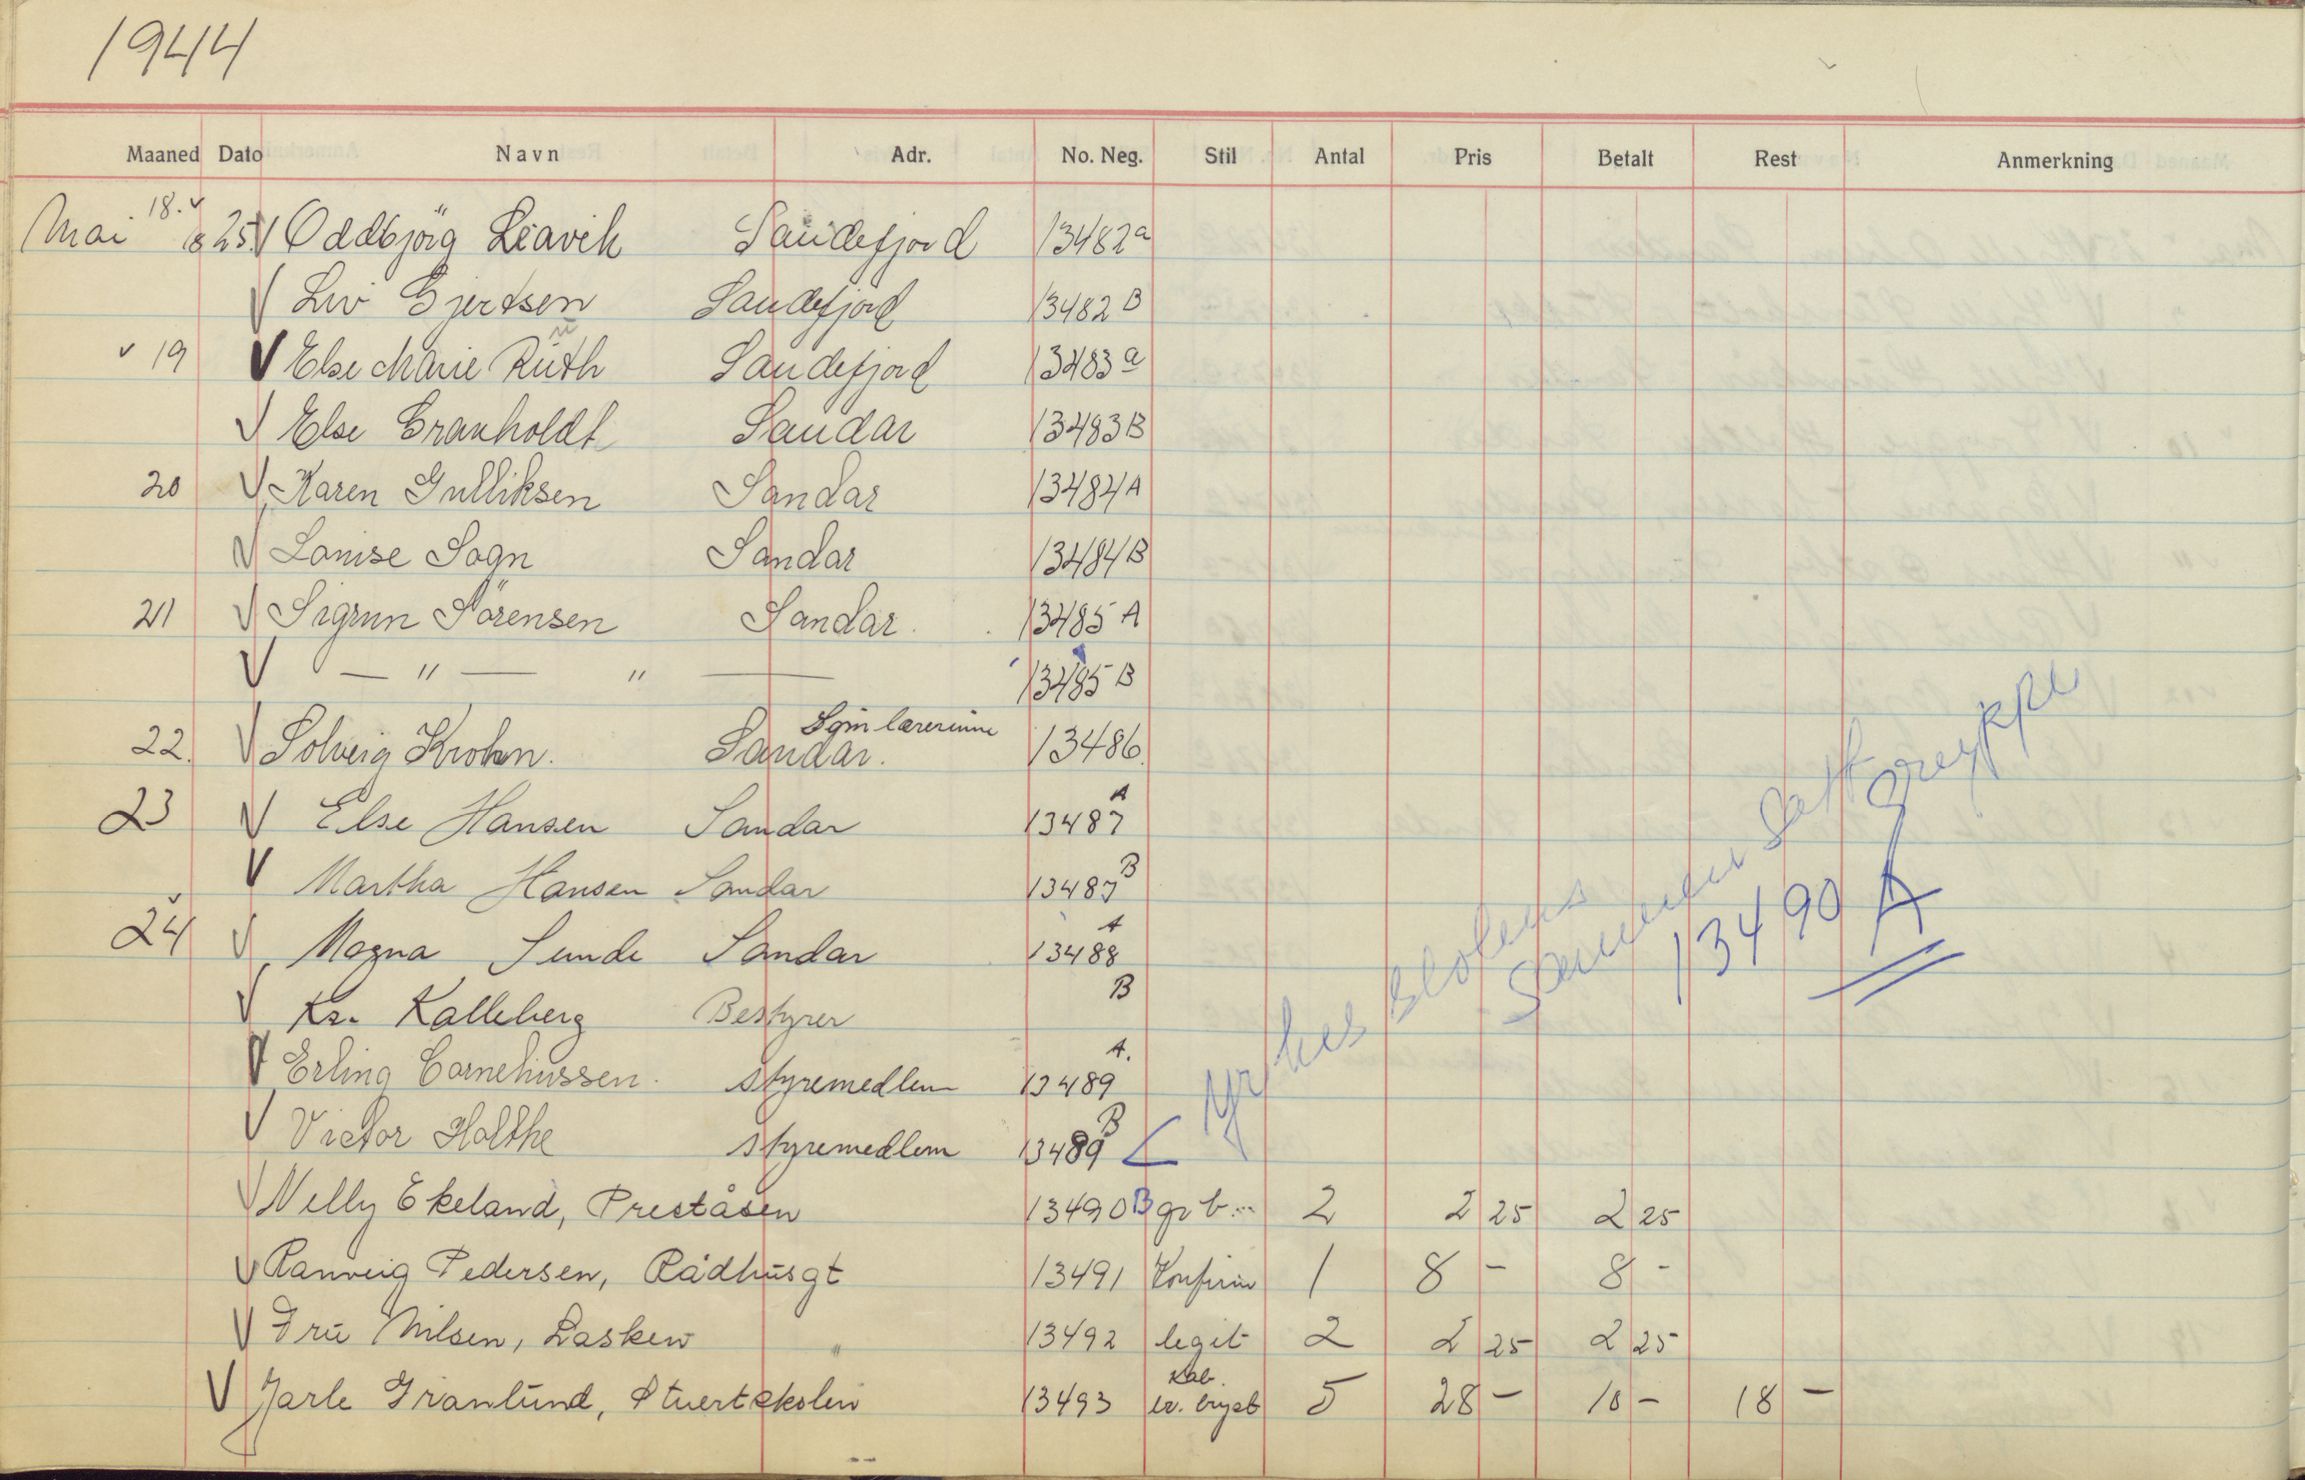 1944
Maaned Dato Navn Adr. No. Neg. Stil Antal Pris Betalt Rest Anmerkning
Mai 18. 25 Oddbjörg Leavik Sandefjord 13482a
Liv Gjertsen Sandefjord 13482 B
19 Else Marie Ruth Sandefjord 13483 a
Else Granholdt Sandar 13483 B
20 Karen Gulliksen Sandar 13484 A
Lovise Sogn Sandar 13484 B
21 Sigrun Sörensen Sandar. 13485 A
— " — " — 13485 B
22. Solveig Krohn. Sandar. lærerinne 13486.
23 Else Hansen Sandar 13487 A
Martha Hansen Sandar 13487 B
24 Magna Sunde Sandar 13488 A
Kr. Kalleberg Bestyrer B
Erling Corneliussen. styremedlem 13489 A.
Victor Holthe styremedlem 13489 B
Yrkes skolens
Sammen satt Gruppe
13490 A
Nelly Ekeland, Preståsen 13490 B gr b 2 2 25 2 25
Ranveig Pedersen, Rådhusgt 13491 Konfirm 1 8 - 8 -
Fru Nilsen, Lasken " 13492 legit 2 2 25 2 25
Jarle Granlund, Stuertskolen 13493 Kab. br. bryst 5 28 - 10 - 18 -